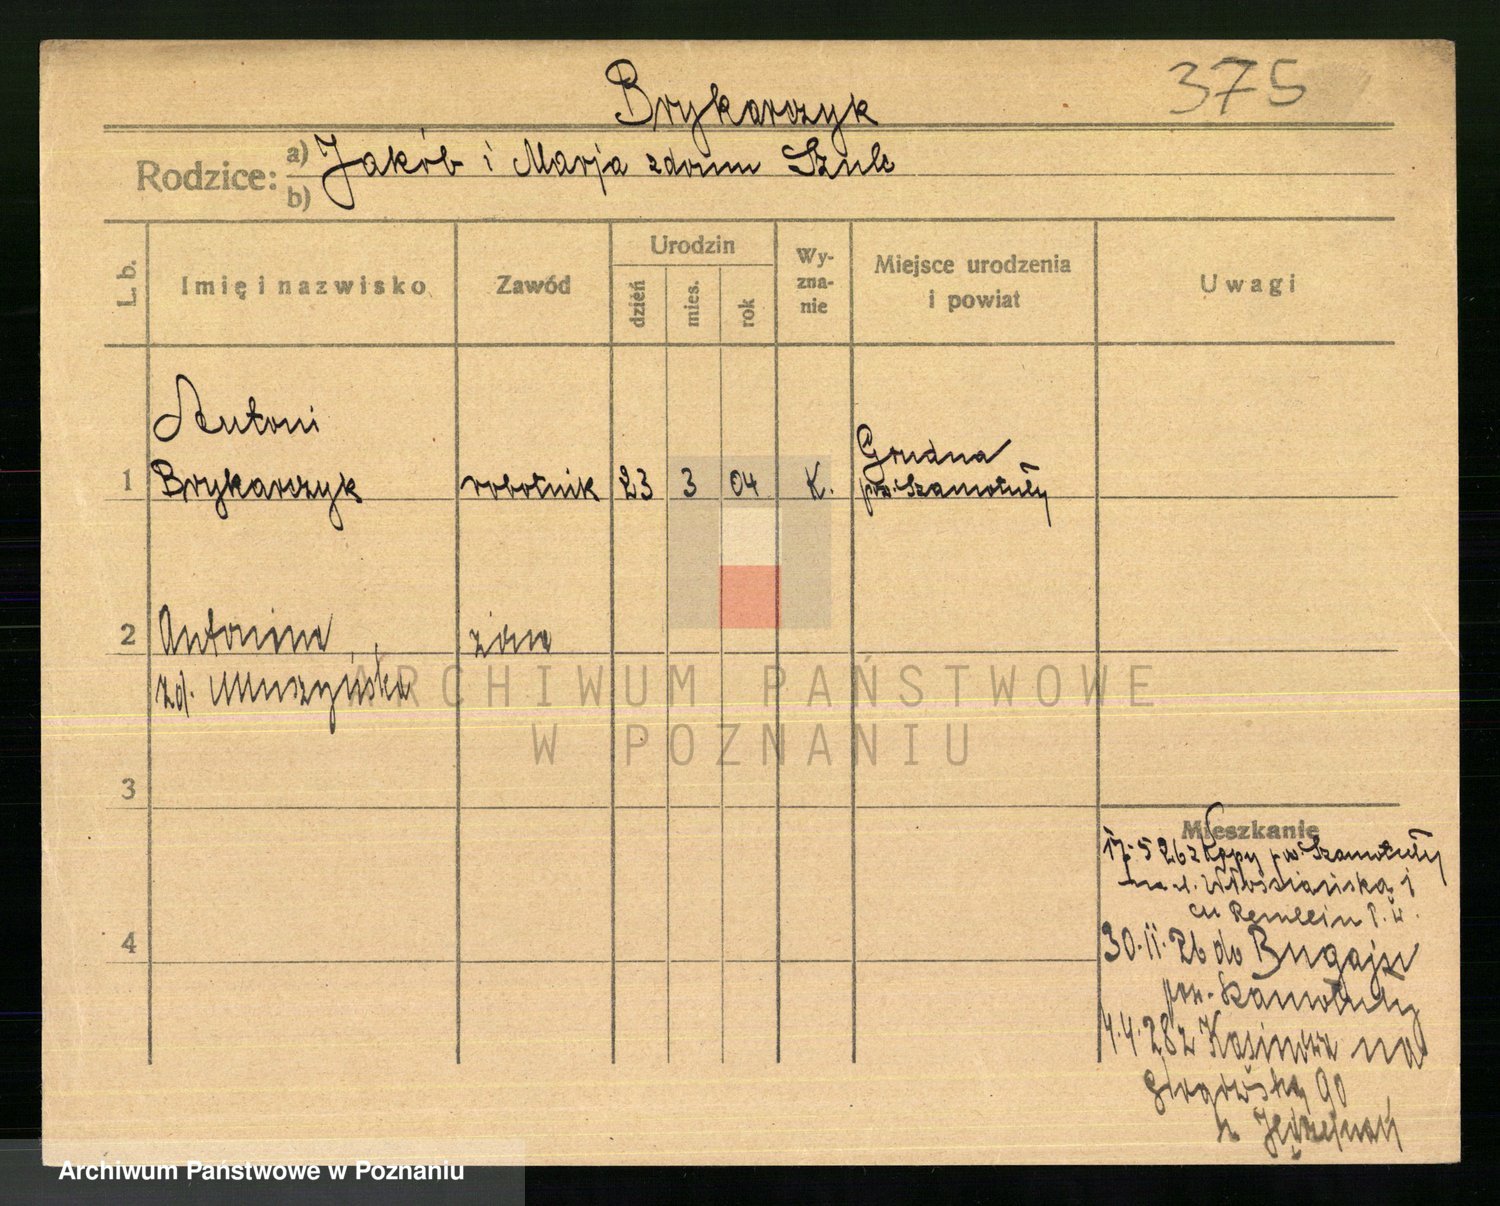 375
Brykarczyk
Rodzice: a) Jakób i Marja zdomu Szulc
b)
L. b. Imię i nazwisko Zawód Urodzin dzień mies. rok Wyznanie Miejsce urodzenia i powiat Uwagi
Antoni
1 Brykarczyk robotnik 23 3 04 K. Grudna
pow. Szamotuły
2 Antonina żona
zd. Muszyńska
3
4
Mieszkanie
17.5 26 z Kopy pow. Szamotuły
na ul. Włościańską 1
30.11.26 do Bugaju
pow. Szamotuły
4.4.28 z Kasinowa na
Głogowską 90
u
ARCHIWUM PAŃSTWOWE
W POZNANIU
Archiwum Państwowe w Poznaniu